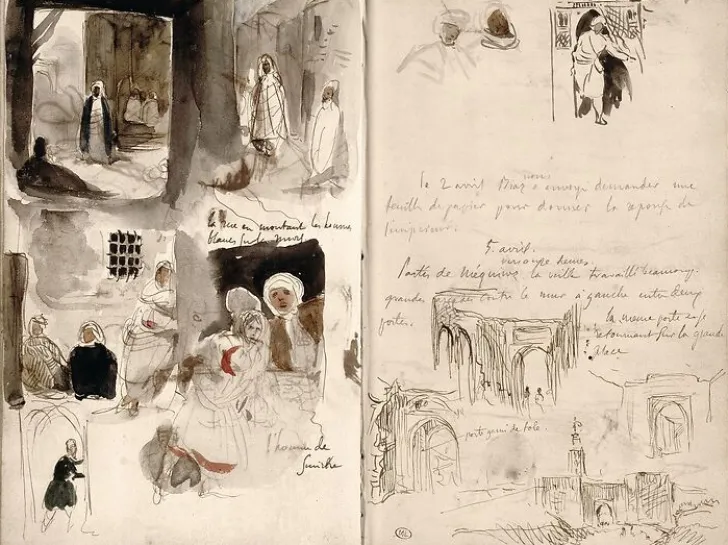 la rue en montant les hommes
blancs sur le mur
l'homme de
nous
le 2 avril Bias a envoyé demander une
feuille de papier pour donner la réponse de
l'empereur.
5 avril.
Portes de Méquinez la veille travaillé
grandes contre le mur à gauche entre deux
portes.
la même porte
retournant sur la grande
place
porte garni de tole.